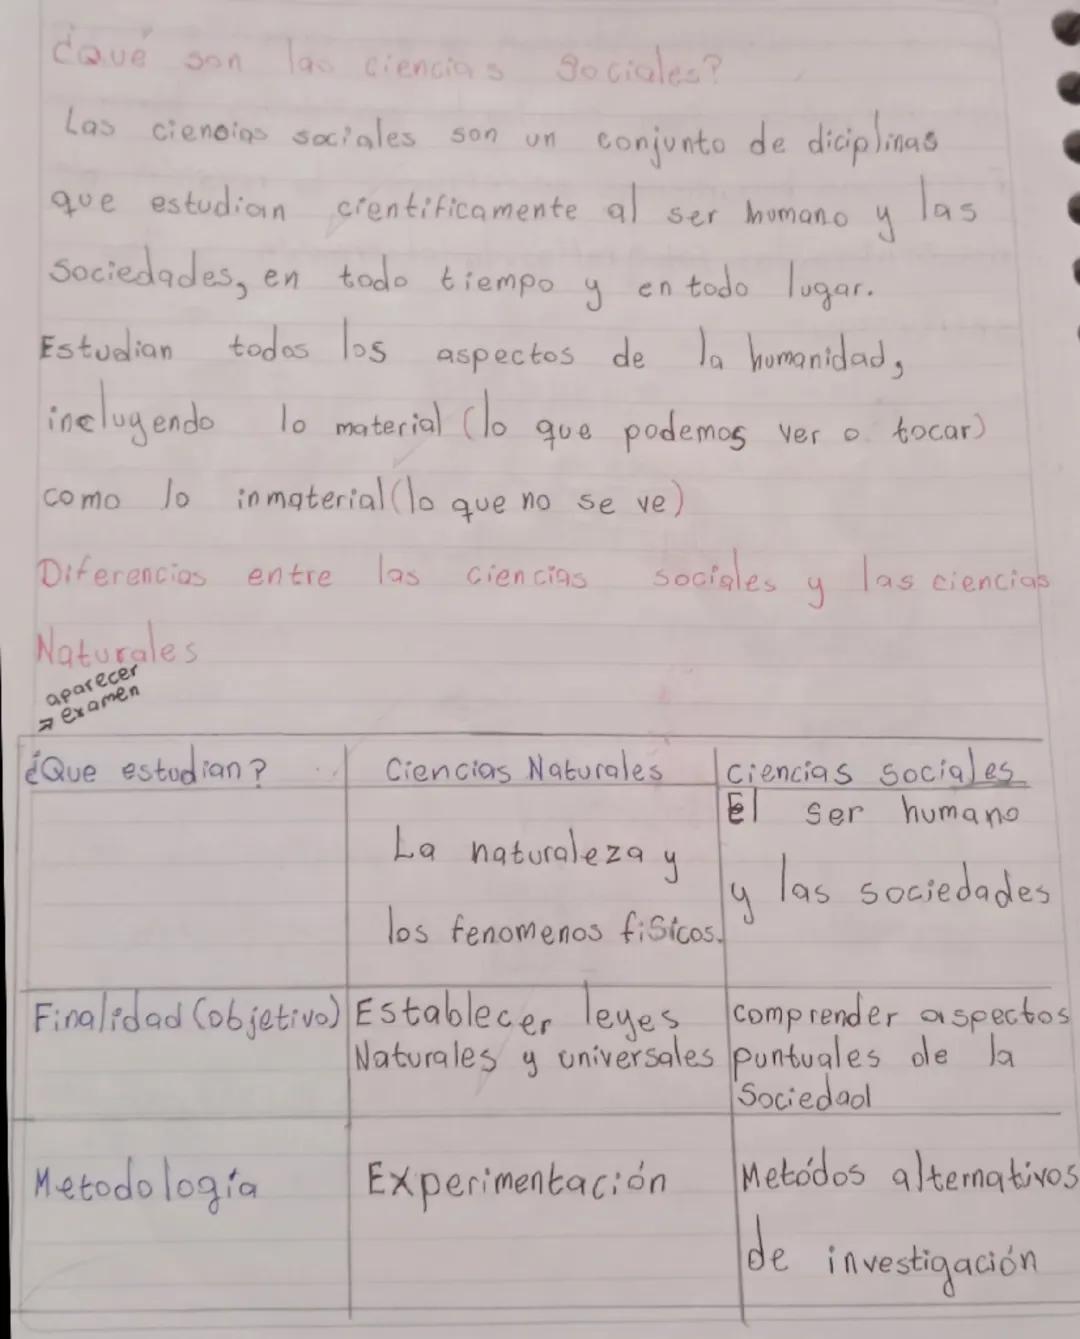 ¿Qué son las ciencias sociales?
Las ciencias sociales son un conjunto de diciplinas
que estudian cientificamente al ser humano y las
Sociedades, en todo tiempo y en todo lugar.
Estudian todos los aspectos de la humanidad,
incluyendo lo material (lo que podemos ver o tocar)
como lo inmaterial (lo que no se ve)
Diferencias entre las ciencias sociales y las ciencias
Naturales
aparecer
→ examen
¿Que estudian? Ciencias Naturales ciencias sociales
La naturaleza y
los fenomenos fisicos.
El ser humano
y las sociedades
Finalidad (objetivo)
Establecer leyes
Naturales y universales
comprender aspectos
puntuales de la
Sociedad
Metodología
Experimentación
Metódos alternativos
de investigación